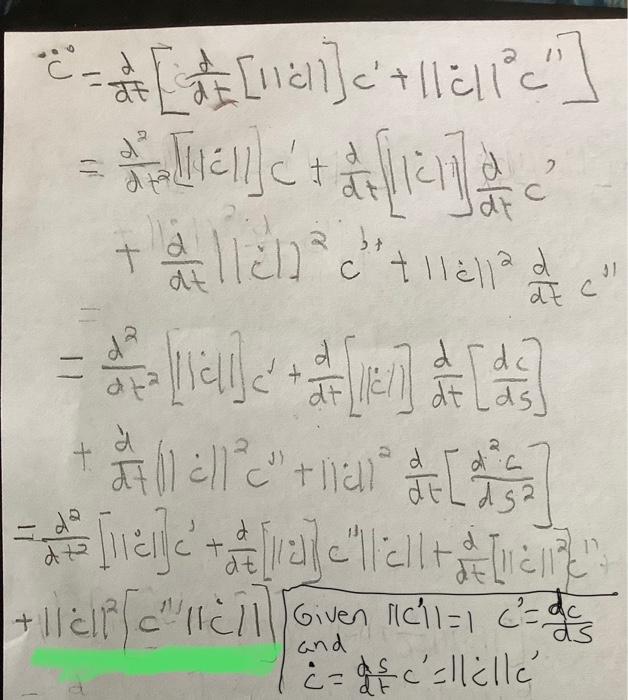 c⃛ = d/dt [ d/dt [||ċ||] c' + ||ċ||² c'' ]
= d²/dt² [||ċ||] c' + d/dt [||ċ||] d/dt c'
+ d/dt ||ċ||² c'' + ||ċ||² d/dt c''
=
= d²/dt² [||ċ||] c' + d/dt [||ċ||] d/dt [dc/ds]
+ d/dt (||ċ||² c'' + ||ċ||² d/dt [d²c/ds²]
= d²/dt² [||ċ||] c' + d/dt [||ċ||] c'' ||ċ|| + d/dt [||ċ||²] c''
+ ||ċ||² [c''' ||ċ||]
Given ||c'|| = 1 c' = dc/ds
and
ċ = ds/dt c' = ||ċ|| c'